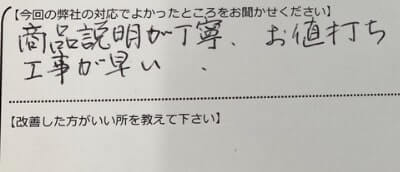 【今回の弊社の対応でよかったところをお聞かせください】
商品説明が丁寧、お値打ち
工事が早い、
【改善した方がいい所を教えて下さい】